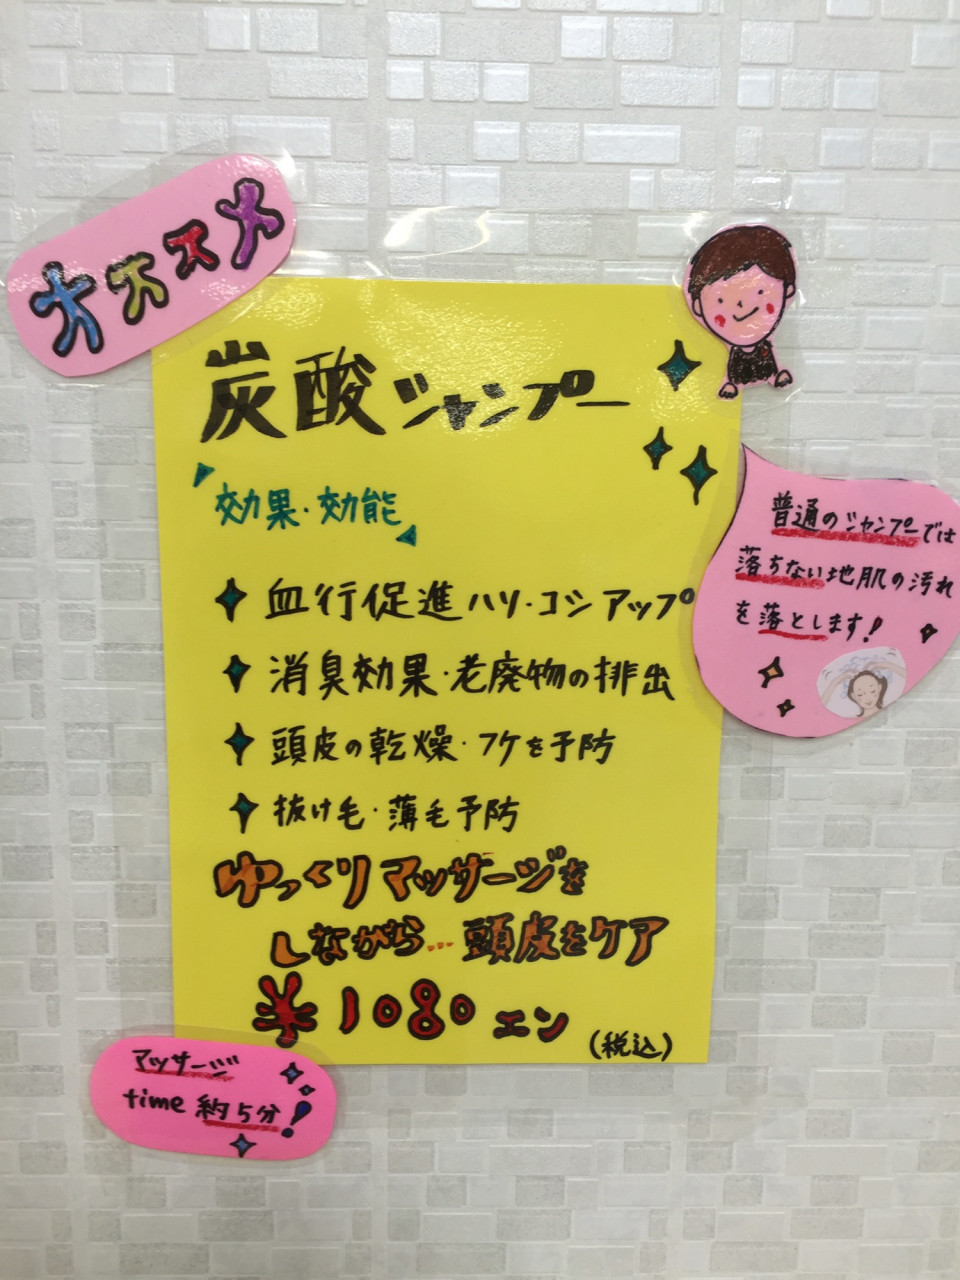 オススメ
炭酸シャンプー
効果・効能
血行促進ハリ・コシアップ
消臭効果・老廃物の排出
頭皮の乾燥・フケを予防
抜け毛・薄毛予防
ゆっくりマッサージを
しながら…頭皮をケア
¥1080エン
(税込)
普通のシャンプーでは
落ちない地肌の汚れ
を落とします!
マッサージ
time 約5分!